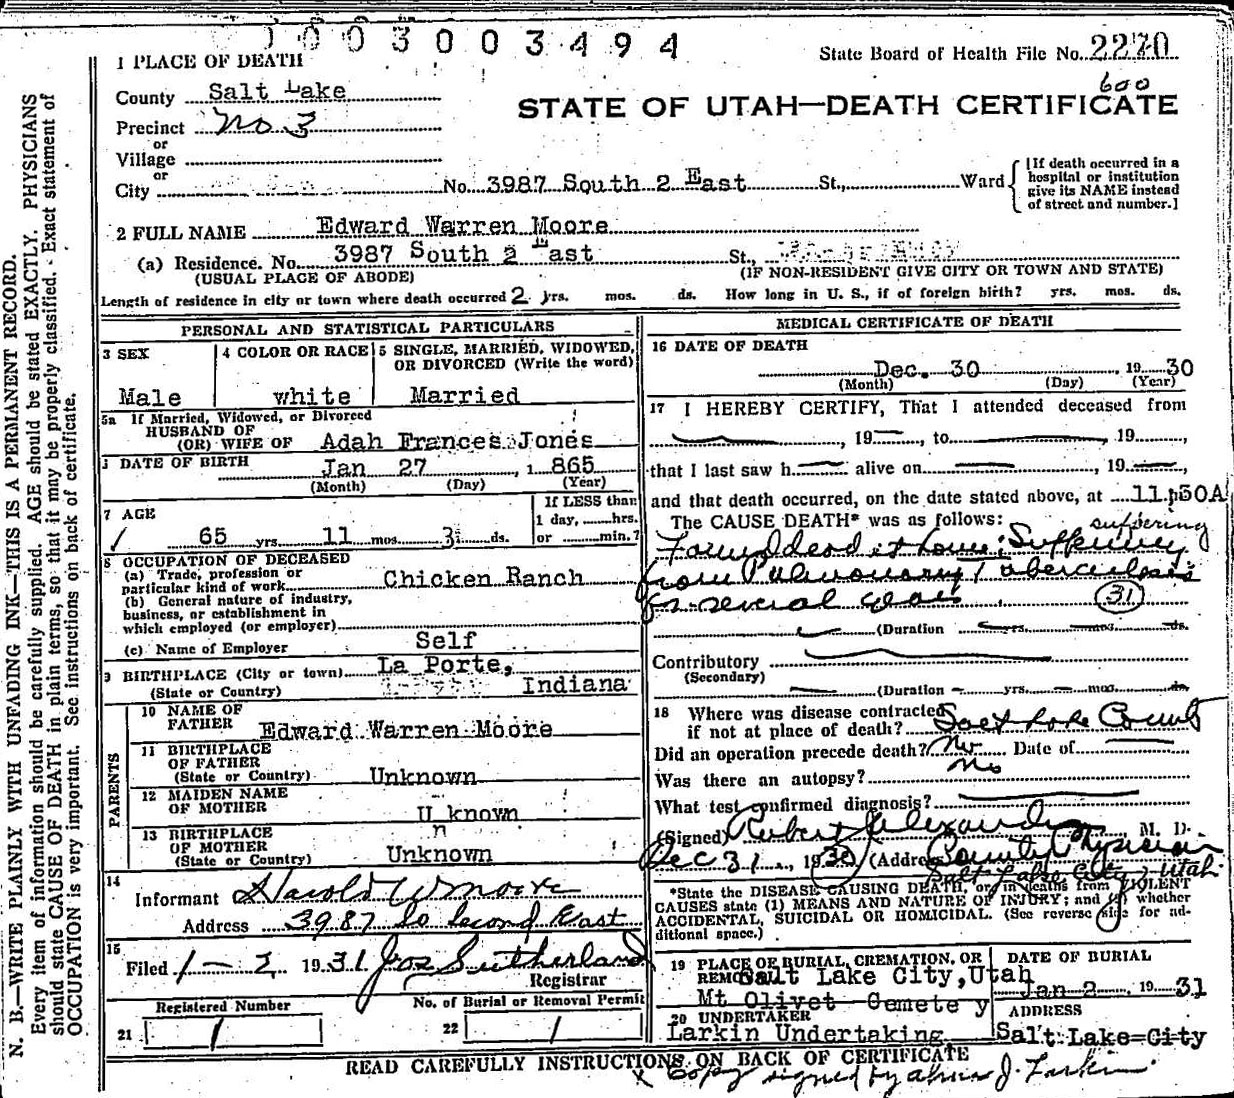 1003003494
State Board of Health File No. 2270
600
1 PLACE OF DEATH
STATE OF UTAH—DEATH CERTIFICATE
County Salt Lake
Precinct No 3
or
Village
or
City No. 3987 South 2 East St., Ward
[If death occurred in a
hospital or institution
give its NAME instead
of street and number.]
2 FULL NAME Edward Warren Moore
(a) Residence. No. 3987 South 2 East St.,
(USUAL PLACE OF ABODE) (IF NON-RESIDENT GIVE CITY OR TOWN AND STATE)
Length of residence in city or town where death occurred 2 yrs. mos. ds. How long in U. S., if of foreign birth? yrs. mos. ds.
PERSONAL AND STATISTICAL PARTICULARS
3 SEX
Male
4 COLOR OR RACE
white
5 SINGLE, MARRIED, WIDOWED,
OR DIVORCED (Write the word)
Married
5a If Married, Widowed, or Divorced
HUSBAND OF
(OR) WIFE OF Adah Frances Jones
DATE OF BIRTH
Jan 27 1 865
(Month) (Day) (Year)
7 AGE
65 yrs. 11 mos. 3 ds.
If LESS than
1 day, hrs.
or min.?
8 OCCUPATION OF DECEASED
(a) Trade, profession or
particular kind of work Chicken Ranch
(b) General nature of industry,
business, or establishment in
which employed (or employer)
(c) Name of Employer Self
9 BIRTHPLACE (City or town) La Porte,
(State or Country) Indiana
PARENTS
10 NAME OF
FATHER Edward Warren Moore
11 BIRTHPLACE
OF FATHER
(State or Country) Unknown
12 MAIDEN NAME
OF MOTHER U known
n
13 BIRTHPLACE
OF MOTHER
(State or Country) Unknown
14
Informant Harold W Moore
Address 3987 So Second East
15
Filed 1-2 1931 Jos Sutherland
Registrar
Registered Number
21 1
No. of Burial or Removal Permit
22 1
MEDICAL CERTIFICATE OF DEATH
16 DATE OF DEATH
Dec. 30 19 30
(Month) (Day) (Year)
17 I HEREBY CERTIFY, That I attended deceased from
, 19 , to , 19 ,
that I last saw h alive on , 19 ,
and that death occurred, on the date stated above, at 11:50A
The CAUSE DEATH* was as follows: suffering
Found dead at home; Suffering
from Pulmonary Tuberculosis
for several years 31
(Duration yrs. mos. ds.
Contributory
(Secondary)
(Duration yrs. mos. ds.
18 Where was disease contracted
if not at place of death? Salt Lake County
Did an operation precede death? No Date of
Was there an autopsy? No
What test confirmed diagnosis?
(Signed) Robert Alexander, M. D.
Dec 31, 1930 (Address County Physician
Salt Lake City, Utah
*State the DISEASE CAUSING DEATH, or, in deaths from VIOLENT
CAUSES state (1) MEANS AND NATURE OF INJURY; and (2) whether
ACCIDENTAL, SUICIDAL OR HOMICIDAL. (See reverse side for ad-
ditional space.)
19 PLACE OF BURIAL, CREMATION, OR
REMOVAL Salt Lake City, Utah
Mt Olivet Cemete y
DATE OF BURIAL
Jan 2, 19 31
20 UNDERTAKER
Larkin Undertaking
ADDRESS
Salt Lake City
READ CAREFULLY INSTRUCTIONS ON BACK OF CERTIFICATE
x Copy signed by J. Larkin
N. B.—WRITE PLAINLY WITH UNFADING INK—THIS IS A PERMANENT RECORD.
Every item of information should be carefully supplied. AGE should be stated EXACTLY. PHYSICIANS
should state CAUSE OF DEATH in plain terms, so that it may be properly classified. Exact statement of
OCCUPATION is very important. See instructions on back of certificate.